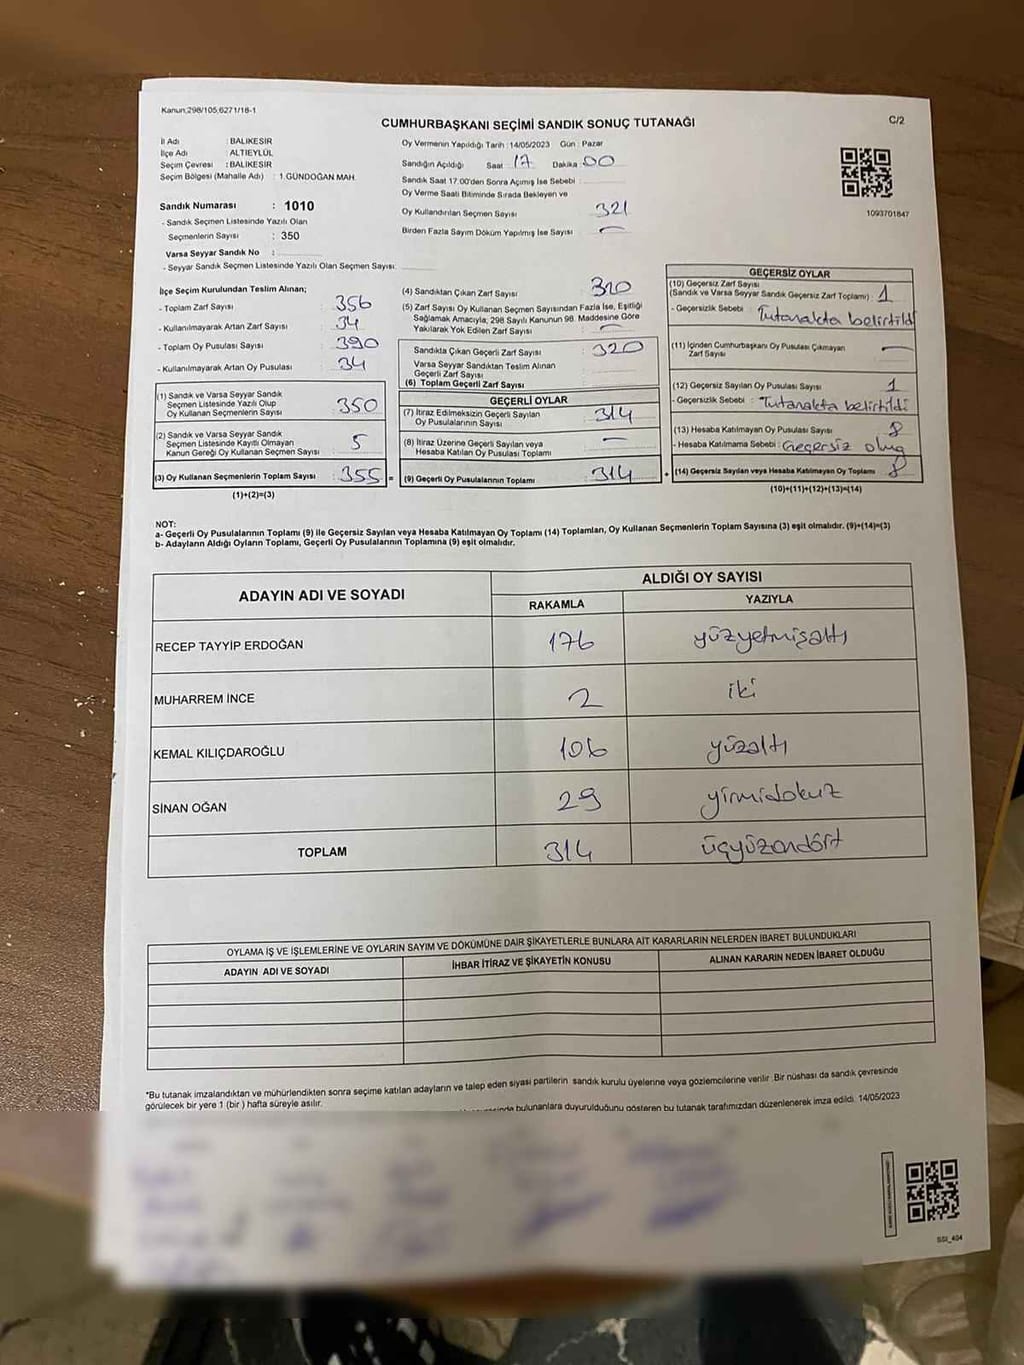 Kanun:298/105,6271/18-1
C/2
CUMHURBAŞKANI SEÇİMİ SANDIK SONUÇ TUTANAĞI
İl Adı : BALIKESİR
İlçe Adı : ALTIEYLÜL
Seçim Çevresi : BALIKESİR
Seçim Bölgesi (Mahalle Adı) : 1.GÜNDOĞAN MAH.
Sandık Numarası : 1010
- Sandık Seçmen Listesinde Yazılı Olan
Seçmenlerin Sayısı : 350
Varsa Seyyar Sandık No :
- Seyyar Sandık Seçmen Listesinde Yazılı Olan Seçmen Sayısı:
Oy Vermenin Yapıldığı Tarih : 14/05/2023 Gün : Pazar
Sandığın Açıldığı Saat 17 Dakika 00
Sandık Saat 17.00'den Sonra Açımış İse Sebebi :
Oy Verme Saati Bitiminde Sırada Bekleyen ve
Oy Kullandırılan Seçmen Sayısı 321
Birden Fazla Sayım Döküm Yapılmış İse Sayısı —
1093701847
İlçe Seçim Kurulundan Teslim Alınan;
- Toplam Zarf Sayısı : 356
- Kullanılmayarak Artan Zarf Sayısı : 34
- Toplam Oy Pusulası Sayısı : 390
- Kullanılmayarak Artan Oy Pusulası : 34
(1) Sandık ve Varsa Seyyar Sandık
Seçmen Listesinde Yazılı Olup
Oy Kullanan Seçmenlerin Sayısı 350
(2) Sandık ve Varsa Seyyar Sandık
Seçmen Listesinde Kayıtlı Olmayan
Kanun Gereği Oy Kullanan Seçmen Sayısı 5
(3) Oy Kullanan Seçmenlerin Toplam Sayısı 355 =
(1)+(2)=(3)
(4) Sandıktan Çıkan Zarf Sayısı : 320
(5) Zarf Sayısı Oy Kullanan Seçmen Sayısından Fazla İse, Eşitliği
Sağlamak Amacıyla; 298 Sayılı Kanunun 98. Maddesine Göre
Yakılarak Yok Edilen Zarf Sayısı : —
Sandıkta Çıkan Geçerli Zarf Sayısı : 320
Varsa Seyyar Sandıktan Teslim Alınan
Geçerli Zarf Sayısı :
(6) Toplam Geçerli Zarf Sayısı :
GEÇERLİ OYLAR
(7) İtiraz Edilmeksizin Geçerli Sayılan
Oy Pusulalarının Sayısı : 314
(8) İtiraz Üzerine Geçerli Sayılan veya
Hesaba Katılan Oy Pusulası Toplamı : —
(9) Geçerli Oy Pusulalarının Toplamı : 314 +
GEÇERSİZ OYLAR
(10) Geçersiz Zarf Sayısı
(Sandık ve Varsa Seyyar Sandık Geçersiz Zarf Toplamı) : 1
- Geçersizlik Sebebi : Tutanakta belirtildi
(11) İçinden Cumhurbaşkanı Oy Pusulası Çıkmayan
Zarf Sayısı : —
(12) Geçersiz Sayılan Oy Pusulası Sayısı : 1
- Geçersizlik Sebebi : Tutanakta belirtildi
(13) Hesaba Katılmayan Oy Pusulası Sayısı : 8
- Hesaba Katılmama Sebebi : Geçersiz oluş
(14) Geçersiz Sayılan veya Hesaba Katılmayan Oy Toplamı : 8
(10)+(11)+(12)+(13)=(14)
NOT:
a- Geçerli Oy Pusulalarının Toplamı (9) ile Geçersiz Sayılan veya Hesaba Katılmayan Oy Toplamı (14) Toplamları, Oy Kullanan Seçmenlerin Toplam Sayısına (3) eşit olmalıdır. (9)+(14)=(3)
b- Adayların Aldığı Oyların Toplamı, Geçerli Oy Pusulalarının Toplamına (9) eşit olmalıdır.
ADAYIN ADI VE SOYADI ALDIĞI OY SAYISI
RAKAMLA YAZIYLA
RECEP TAYYİP ERDOĞAN 176 yüzyetmişaltı
MUHARREM İNCE 2 iki
KEMAL KILIÇDAROĞLU 106 yüzaltı
SİNAN OĞAN 29 yirmidokuz
TOPLAM 314 üçyüzondört
OYLAMA İŞ VE İŞLEMLERİNE VE OYLARIN SAYIM VE DÖKÜMÜNE DAİR ŞİKAYETLERLE BUNLARA AİT KARARLARIN NELERDEN İBARET BULUNDUKLARI
ADAYIN ADI VE SOYADI İHBAR İTİRAZ VE ŞİKAYETİN KONUSU ALINAN KARARIN NEDEN İBARET OLDUĞU
*Bu tutanak imzalandıktan ve mühürlendikten sonra seçime katılan adayların ve talep eden siyasi partilerin sandık kurulu üyelerine veya gözlemcilerine verilir. Bir nüshası da sandık çevresinde
görülecek bir yere 1 (bir) hafta süreyle asılır.
bulunanlara duyurulduğunu gösteren bu tutanak tarafımızdan düzenlenerek imza edildi. 14/05/2023
SSI_404